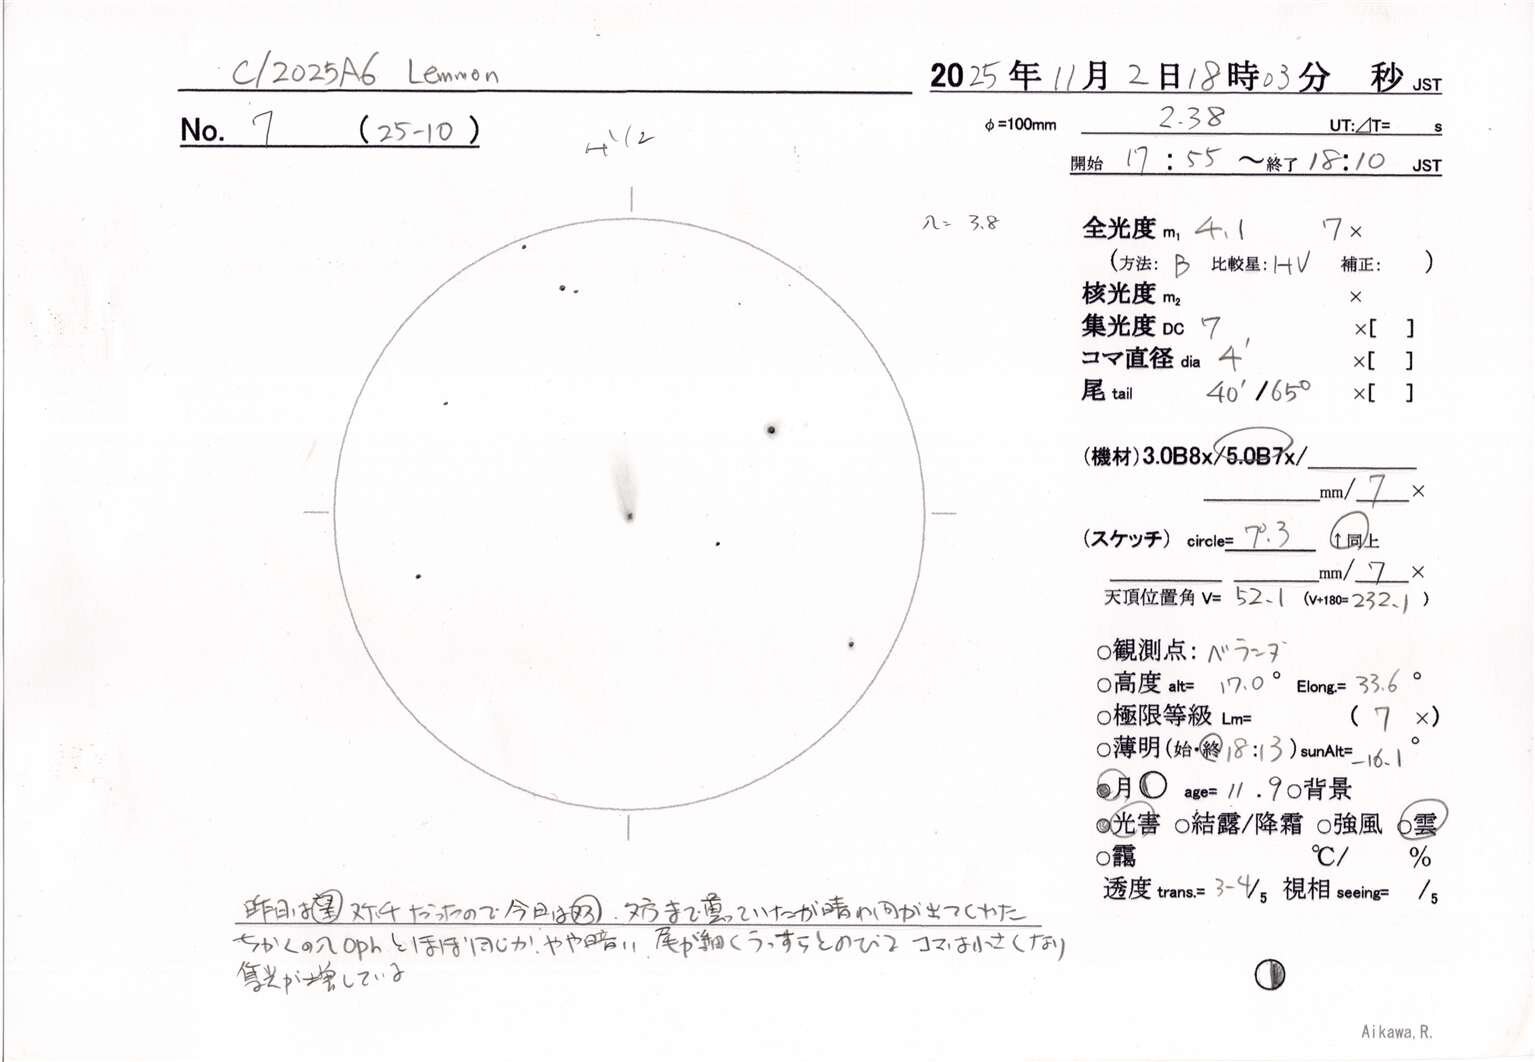 C/2025A6 Lemmon
2025年11月2日18時03分 秒 JST
No. 7 (25-10)
φ=100mm 2.38 UT:⊿T= s
開始 17:55 ～終了 18:10 JST
λ= 3.8
全光度 m₁ 4.1 7×
(方法: B 比較星: HV 補正: )
核光度 m₂ ×
集光度 DC 7 ×[ ]
コマ直径 dia 4' ×[ ]
尾 tail 40' /65° ×[ ]
(機材)3.0B8x/5.0B7x/
mm/ 7 ×
(スケッチ) circle= 7°.3 ↑同上
mm/ 7 ×
天頂位置角 V= 52.1 (V+180=232.1)
○観測点: ベランダ
○高度 alt= 17.0° Elong.= 33.6°
○極限等級 Lm= ( 7 ×)
○薄明(始・終18:13)sunAlt=-16.1°
○月 age= 11.9○背景
○光害 ○結露/降霜 ○強風 ○雲
○靄 ℃/ %
透度 trans.= 3-4/5 視相 seeing= /5
昨日は望スケッチだったので今日は双。夕方まで曇っていたが晴れ間が出てくれた
ちかくのλOphとほぼ同じか、やや暗い。尾が細くうっすらとのびる コマは小さくなり
集光が増している
Aikawa,R.